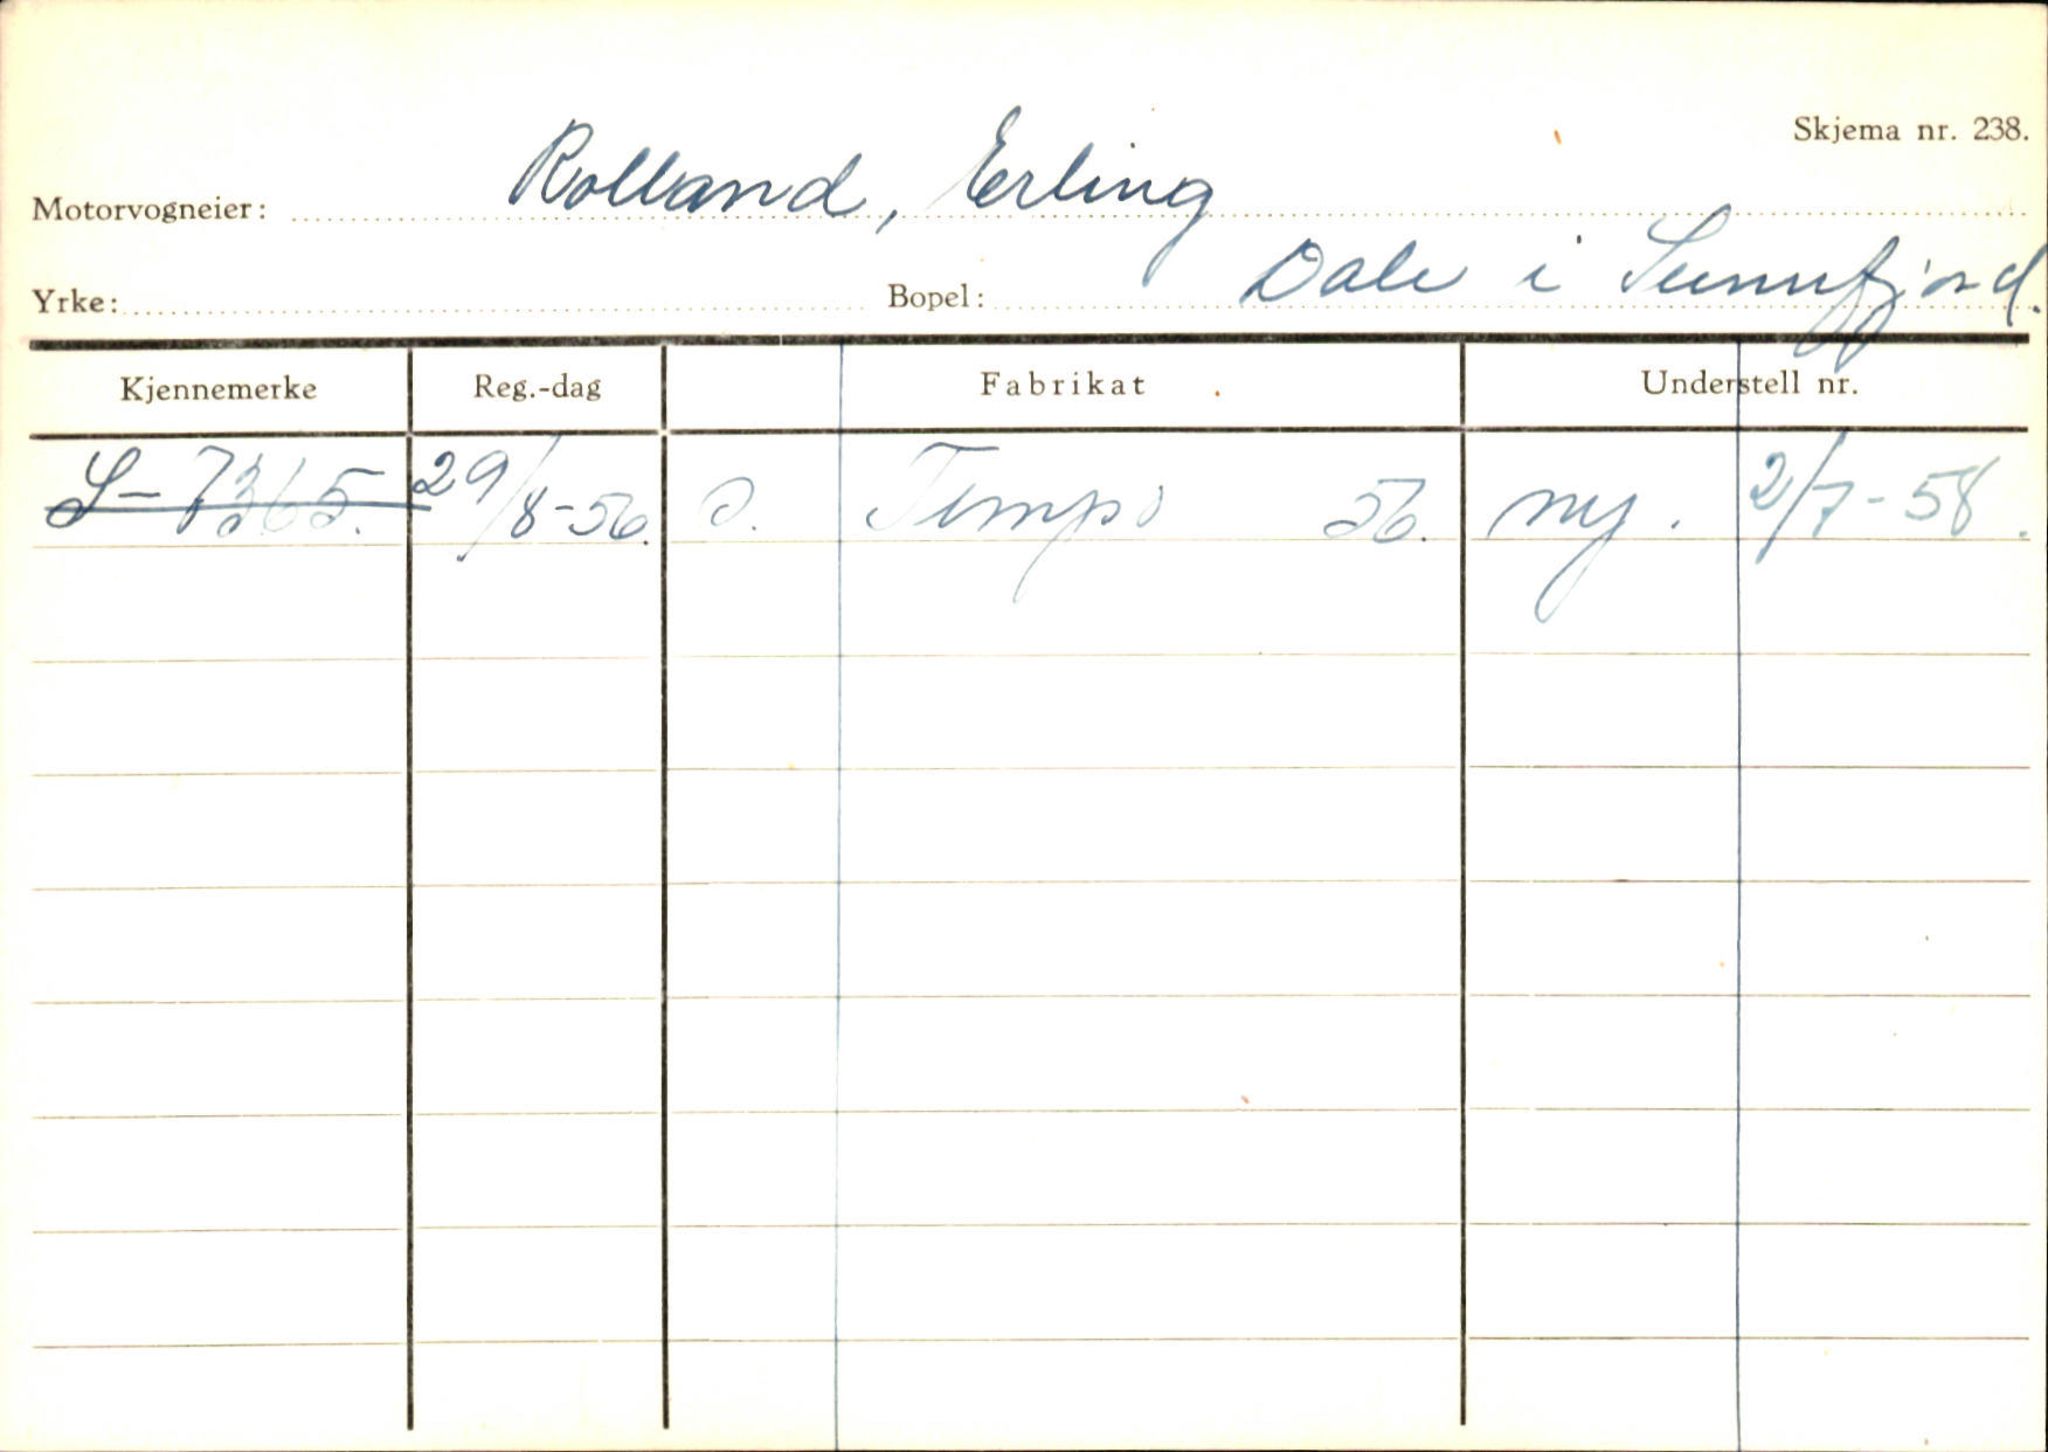 Skjema nr. 238.
Motorvogneier: Rolland, Erling
Yrke: Bopel: Dale i Sunnfjord.
Kjennemerke Reg.-dag Fabrikat Understell nr.
S-7365. 29/8-56. O. Tempo 56. ny. 2/7-58.